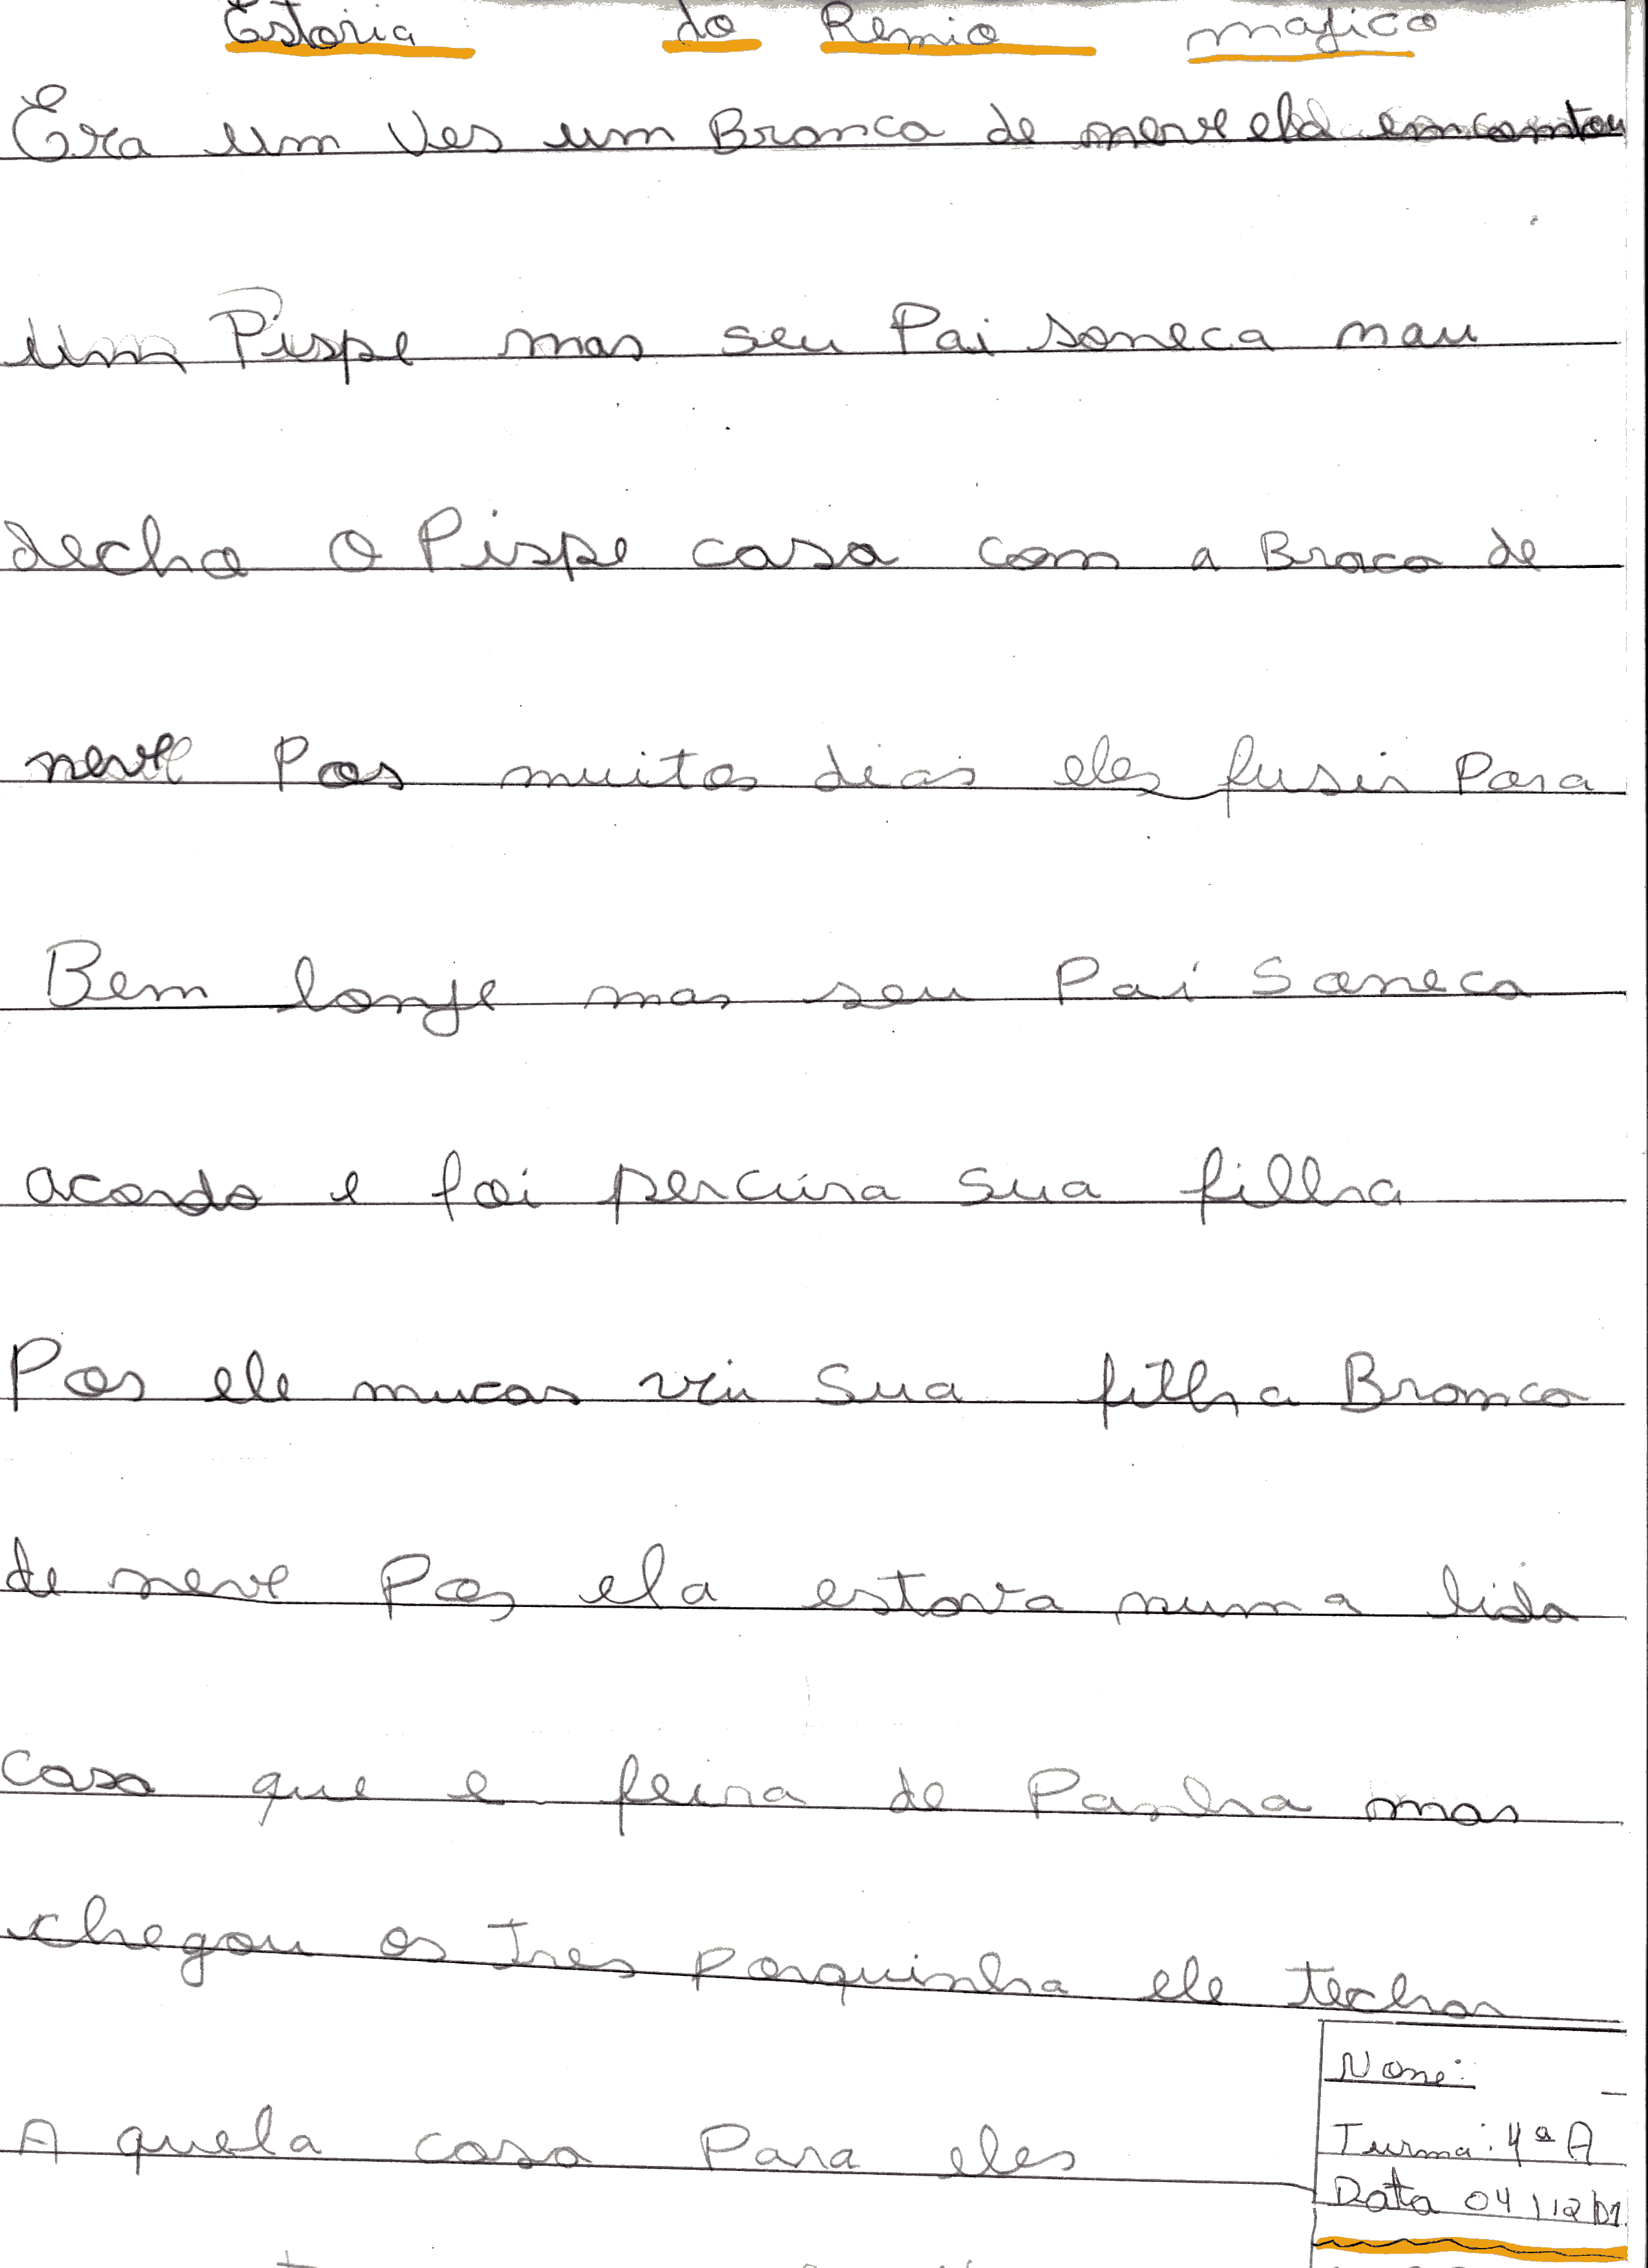 Estoria do Remio mafico
Era um Ves um Branca de neve ela emcontou
um Pispe mas seu Pai soneca nau
decha o Pispe casa com a Braca de
neve Pos muitos dias eles fusir Para
Bem lonje mas seu Pai Soneca
acordo e foi percura sua filha
Pos ele mucas viu sua filha Branca
de neve Pos ela estava numa lida
casa que e feira de Panha mas
chegou os Tres Porquinha ele techar
A quela casa Para eles
Nome:
Turma: 4ª A
Data 04/12/01